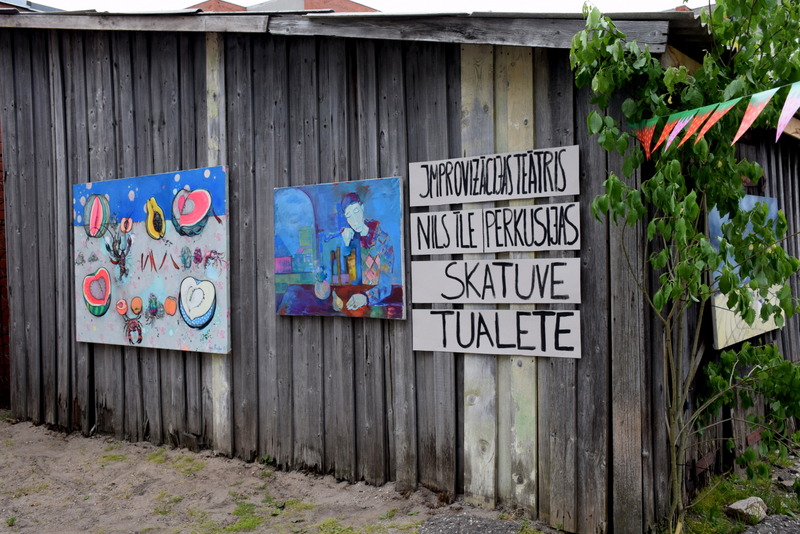 IMPROVIZĀCIJAS TEĀTRIS
NILS ĪLE | PERKUSIJAS
SKATUVE
TUALETE